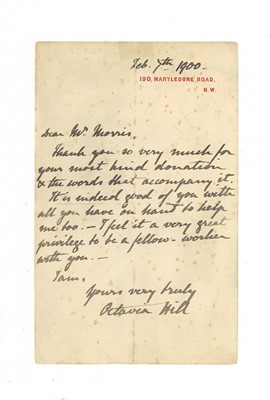 Feb. 7th 1900.
190, MARYLEBONE ROAD,
N.W.
Dear Mr Morris,
Thank you so very much for
your most kind donation
& the words that accompany it.
It is indeed good of you with
all you have on hand to help
me too. — I feel it a very great
privilege to be a fellow-worker
with you. —
I am,
Yours very truly
Octavia Hill